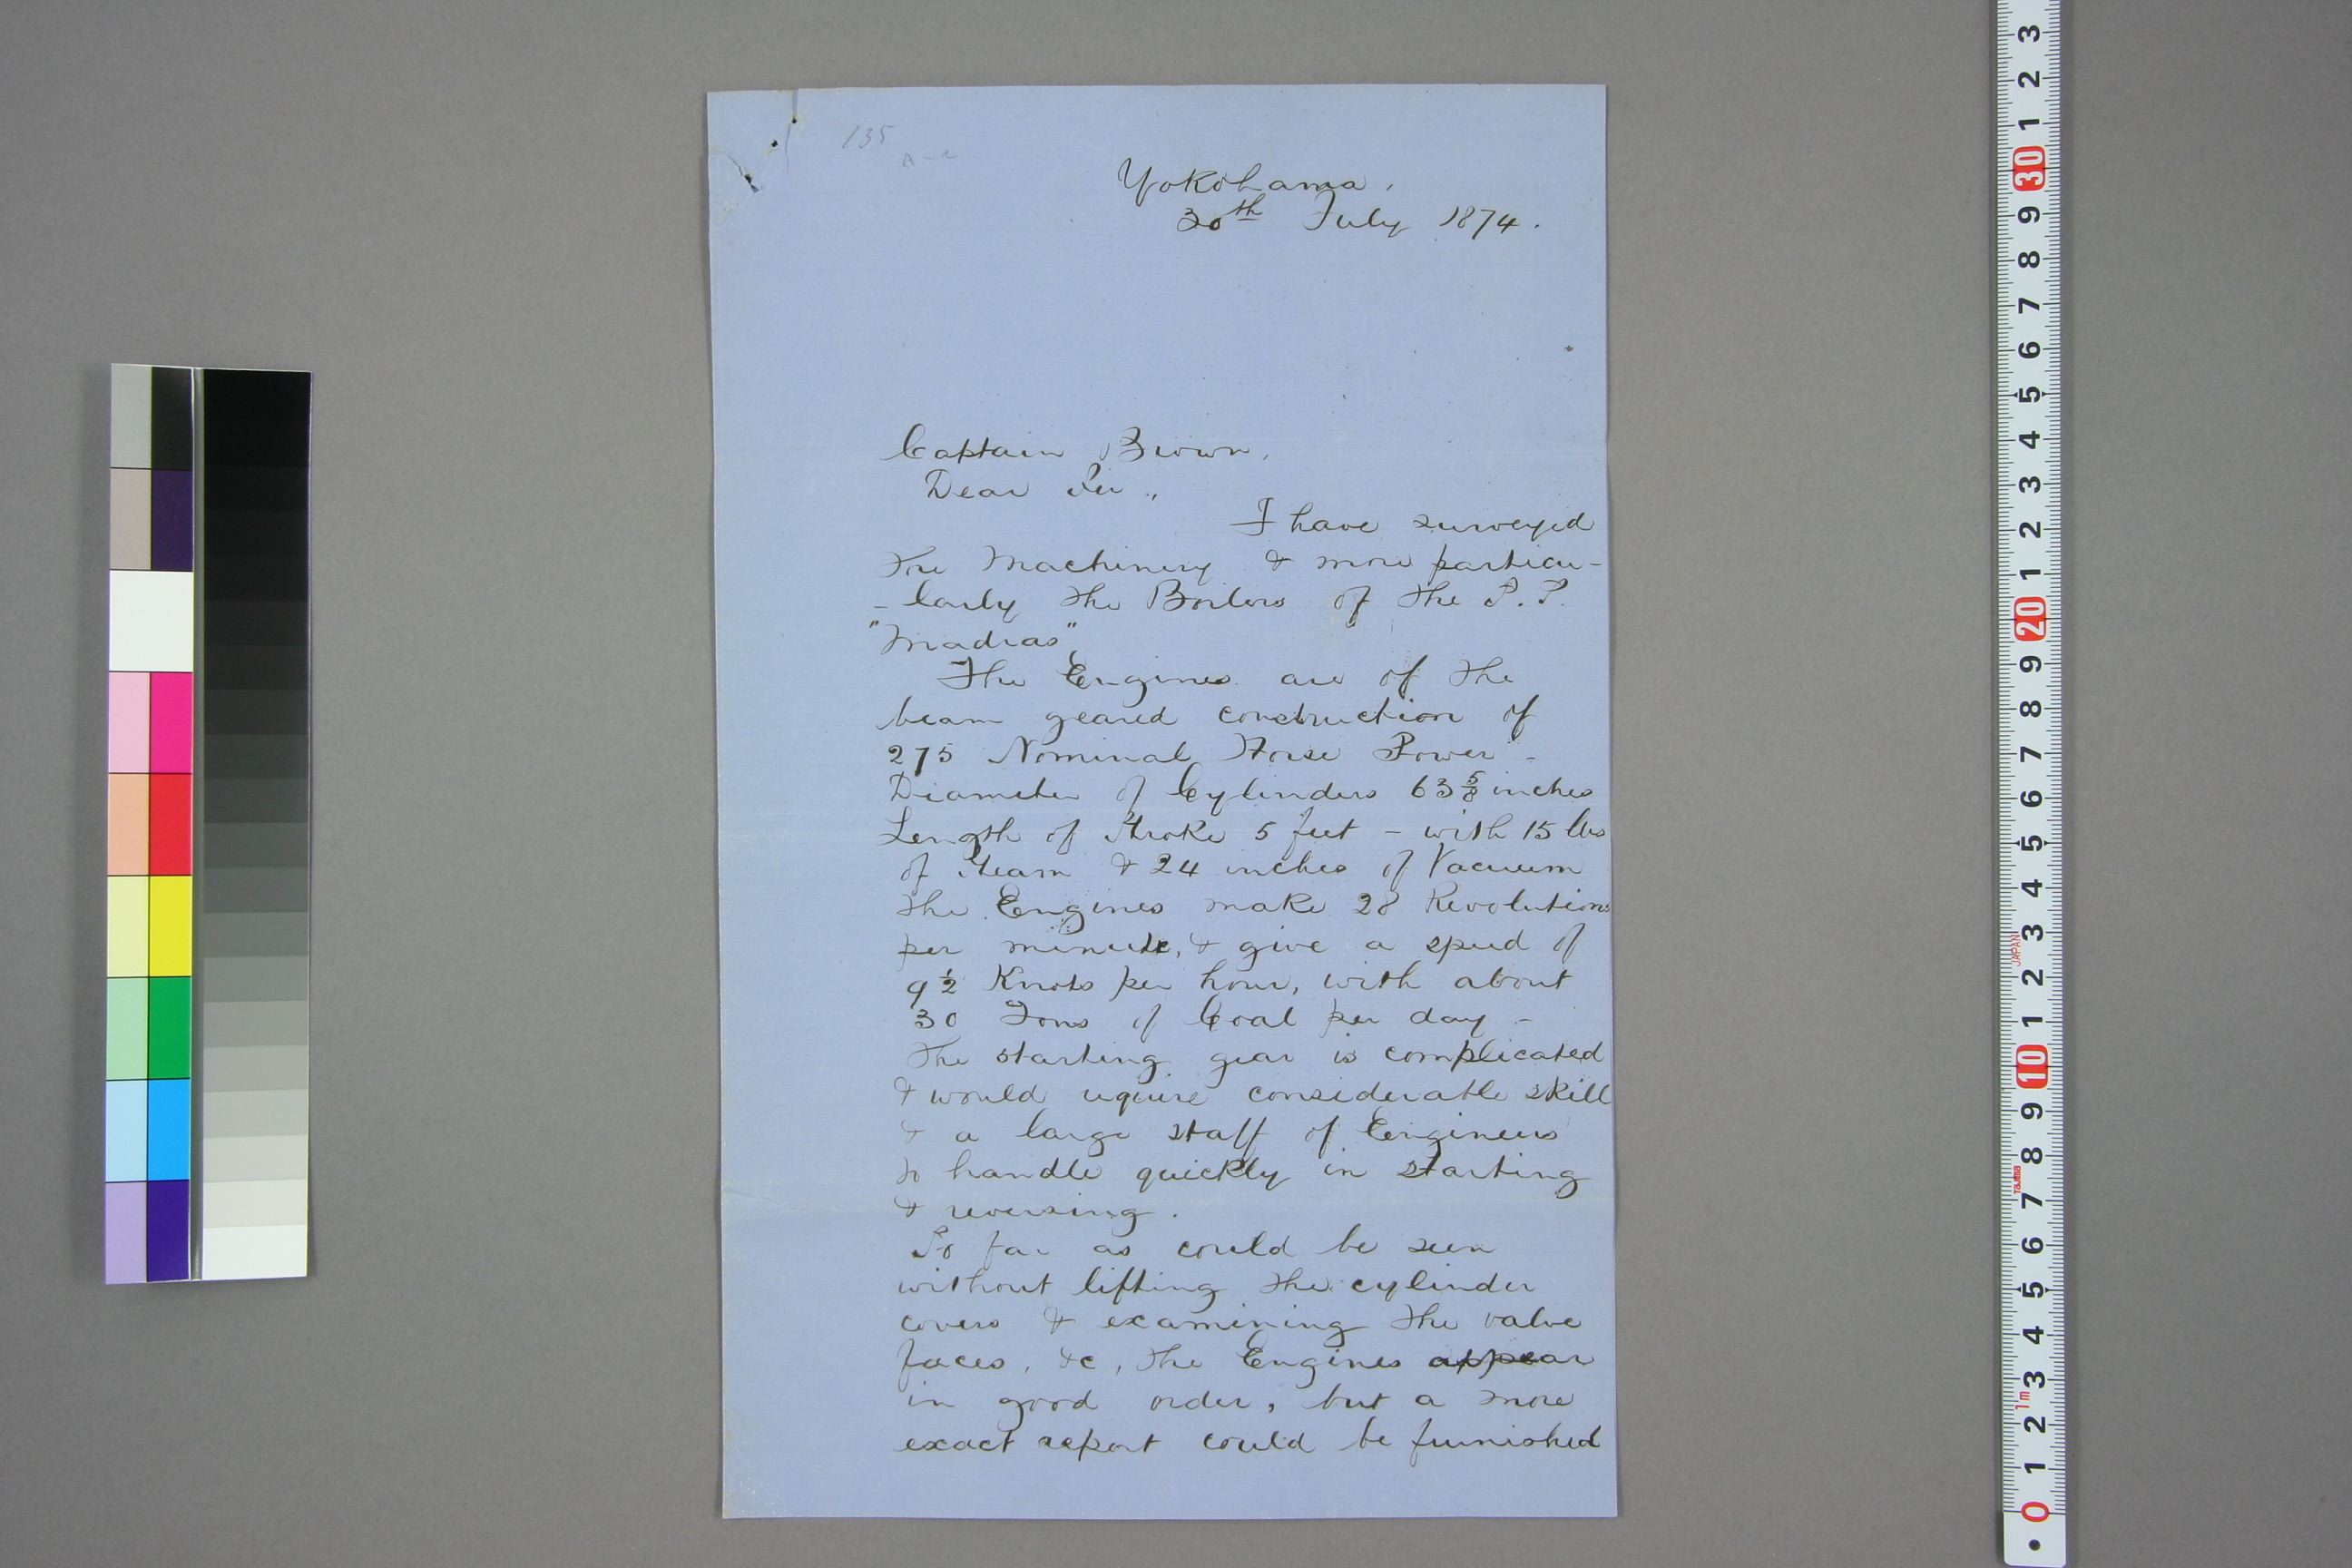 135
Yokohama.
30th July 1874.
Captain Brown,
Dear Sir,,
I have surveyed
the Machinery & more particu-
-larly the Boilers of the S.S.
"Madras",
The Engines are of the
beam geared construction of
275 Nominal Horse Power -
Diameter of Cylinders 63 5/8 inches
Length of Stroke 5 feet - with 15 lbs
of Steam & 24 inches of Vacuum
the Engines make 28 Revolutions
per minute, & give a speed of
9 1/2 Knots per hour, with about
30 Tons of Coal per day -
The starting gear is complicated
& would require considerable skill
& a large staff of Engineers
to handle quickly in starting
& reversing.
So far as could be seen
without lifting the cylinder
covers & examining the valve
faces, &c, the Engines appear
in good order, but a more
exact report could be furnished
3
2
1
30
9
8
7
6
5
4
3
2
1
20
9
8
7
6
5
4
3
JAPAN
2
1
10
9
8
Tajima
7
6
5
4
3
1m
2
1
0